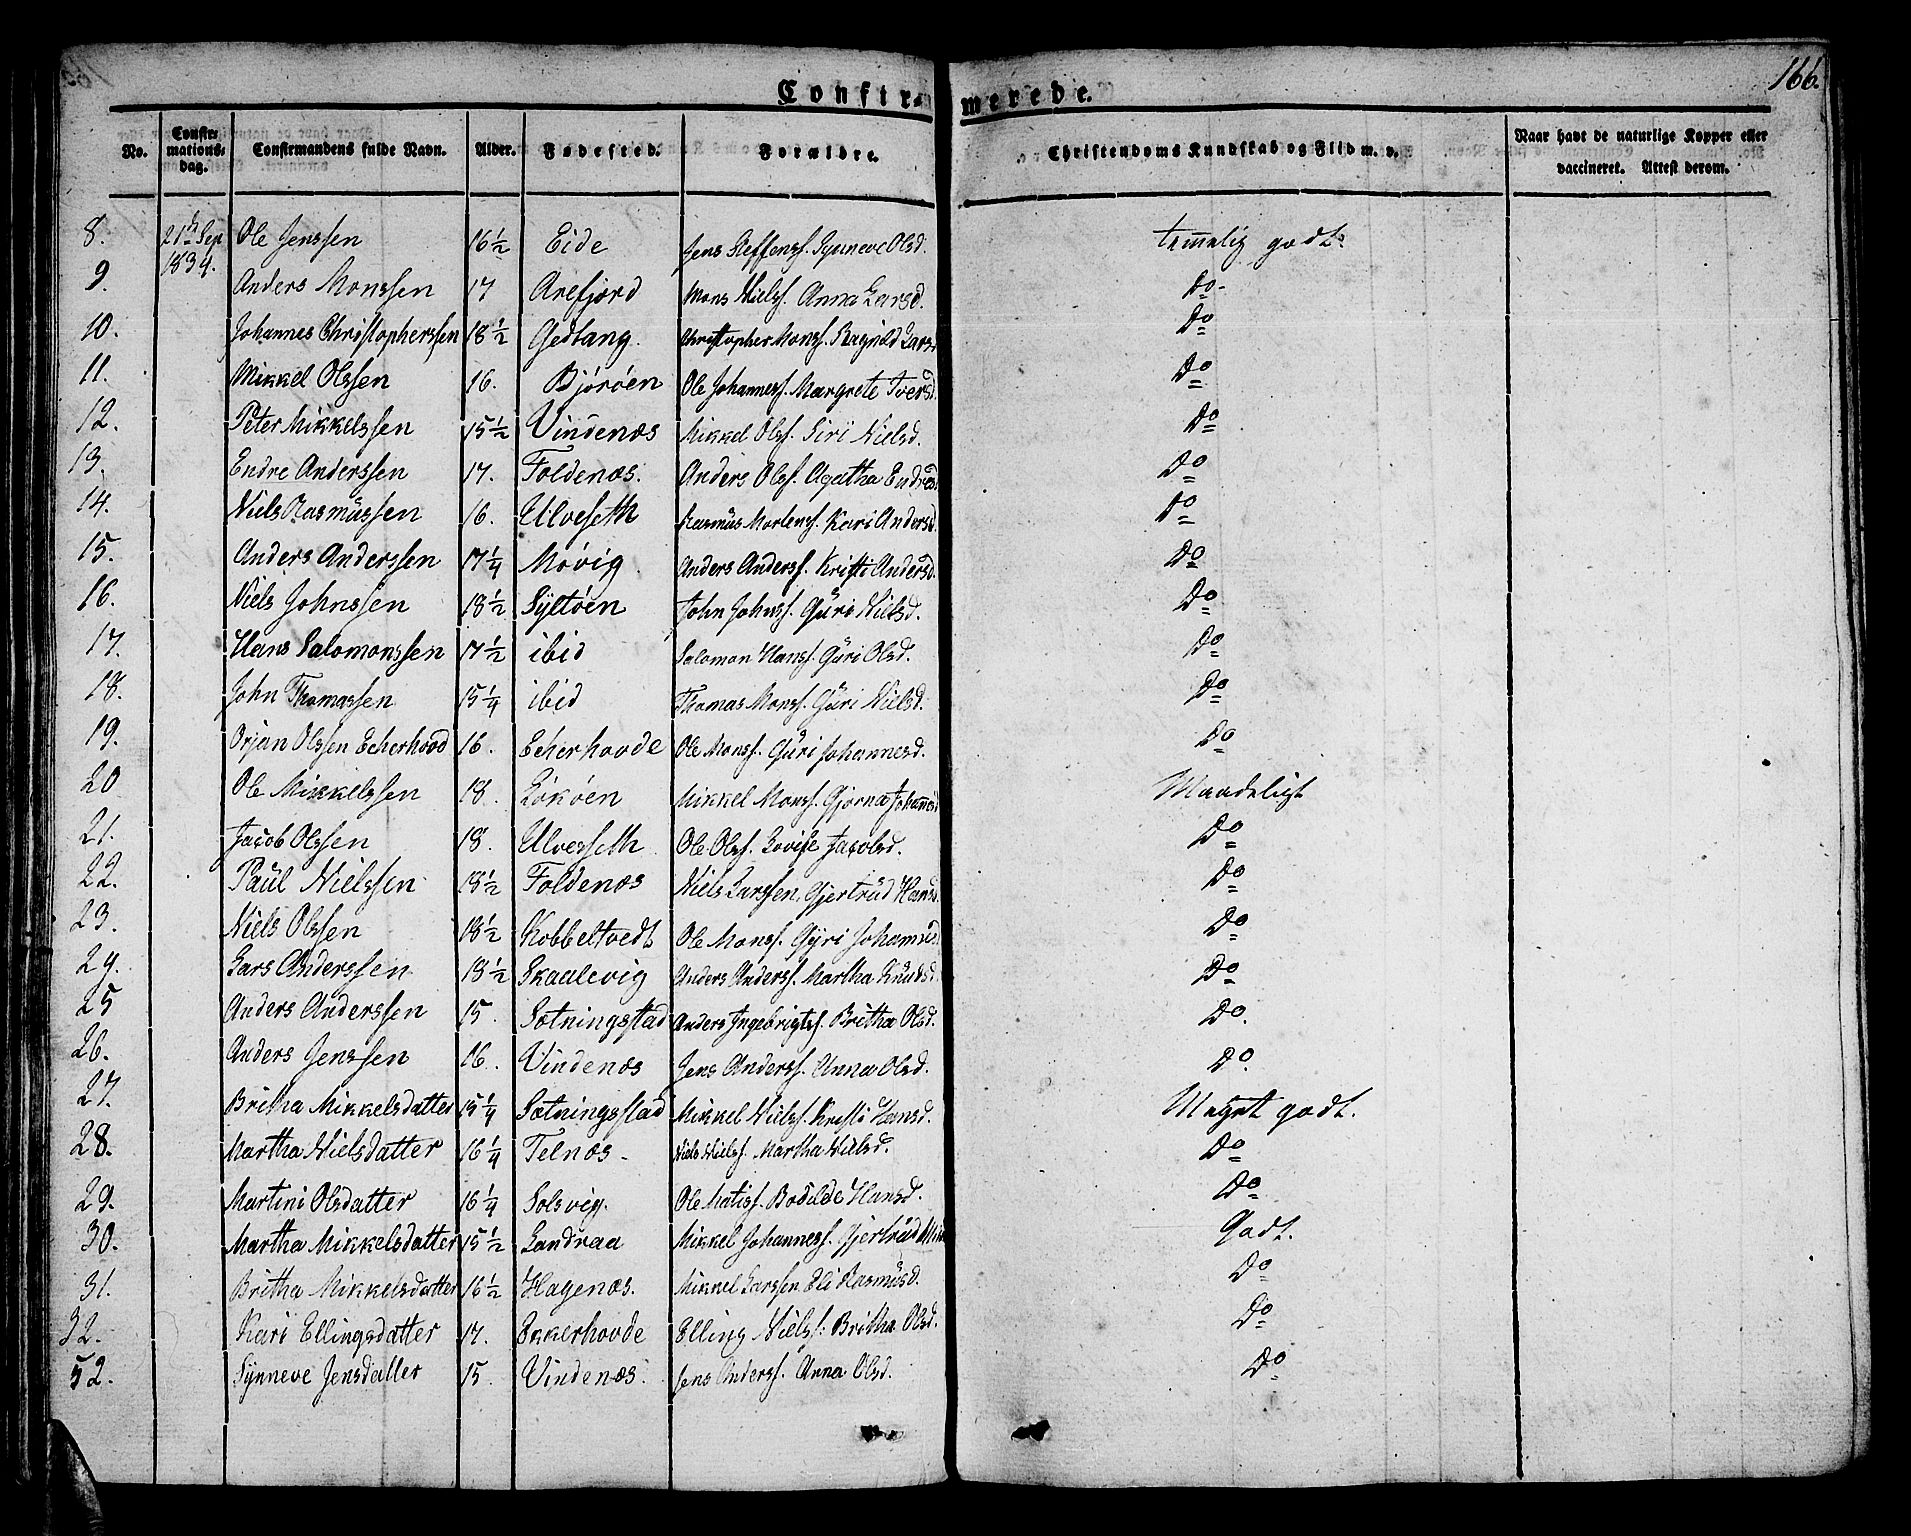 166.
Confirmerede.
No. Confirmationsdag. Confirmandens fulde Navn. Alder. Fødested. Forældre. Christendoms Kundskab og Flid m. v. Naar havt de naturlige Kopper eller vaccineret. Attest derom.
8. 21de Sep 1834. Ole Jenssen 16½ Eide Jens Steffenss. Synneve Olsd. temmelig godt.
9. Anders Monssen 17 Arefjord Mons Nielss. Anna Larsd. Do
10. Johannes Christopherssen 18½ Gedtang. Christopher Monss. Ragnild Larsd Do
11. Mikkel Olssen 16. Björöen Ole Johanness. Margrete Iversd. Do
12. Peter Mikkelssen 15½ Vindenæs Mikkel Olss. Siri Nielsd. Do
13. Endre Anderssen 17. Foldenæs. Anders Olss. Agatha Endresd Do
14. Niels Rasmüssen 16. Ulveseth Rasmüs Mortenss. Kari Andersd. Do
15. Anders Anderssen 17¼ Movig Anders Anderss. Kristi Andersd. Do
16. Niels Johnssen 18½ Syltöen John Johnss. Güri Nielsd. Do
17. Hans Salomonssen 17½ ibid Salomon Hanss. Güri Olsd. Do
18. John Thomassen 15¼ ibid Thomas Monss. Güri Nielsd. Do
19. Orjan Olssen Echerhovd 16. Echerhovde Ole Monss. Güri Johannesd. Do
20 Ole Mikkelssen 18. Lököen Mikkel Monss. Gjorna Johannesd Maadeligt
21. Jacob Olssen 18. Ulvesseth Ole Olss. Lovise Jacobsd. Do
22. Paül Nielssen 18½ Foldenæs Niels Larssen. Gjertrüd Hansd. Do
23. Niels Olssen 18½ Kobbeltvedt Ole Monss. Gyri Johannesd. Do
24. Lars Anderssen 18½ Skaalevig Anders Anderss. Martha Knüdsd. Do
25 Anders Anderssen 15. Sotningstad Anders Ingebrigtss. Britha Olsd. Do.
26. Anders Jenssen 16. Vindenæs Jens Anderss. Anna Olsd. Do.
27. Britha Mikkelsdatter 15¼ Sætningsstad Mikkel Nielss. Kristi Hansd. Meget godt.
28. Martha Nielsdatter 16¼ Telnæs. Niels Nielss. Martha Nielsd. Do
29. Martini Olsdatter 16¼ Solsvig. Ole Matiss. Bodilde Hansd. Do
30. Martha Mikkelsdatter 15½ Landraa Mikkel Johanness. Gjertrüd Godt.
31. Britha Mikkelsdatter 16½ Hagenæs. Mikkel Larssen Eli Rasmüsd. Do
32. Kari Ellingsdatter 17. Ekkerhovde Elling Nielss. Britha Olsd. Do
52. Synneve Jensdatter 15. Vindenæs. Jens Anderss. Anna Olsd. Do